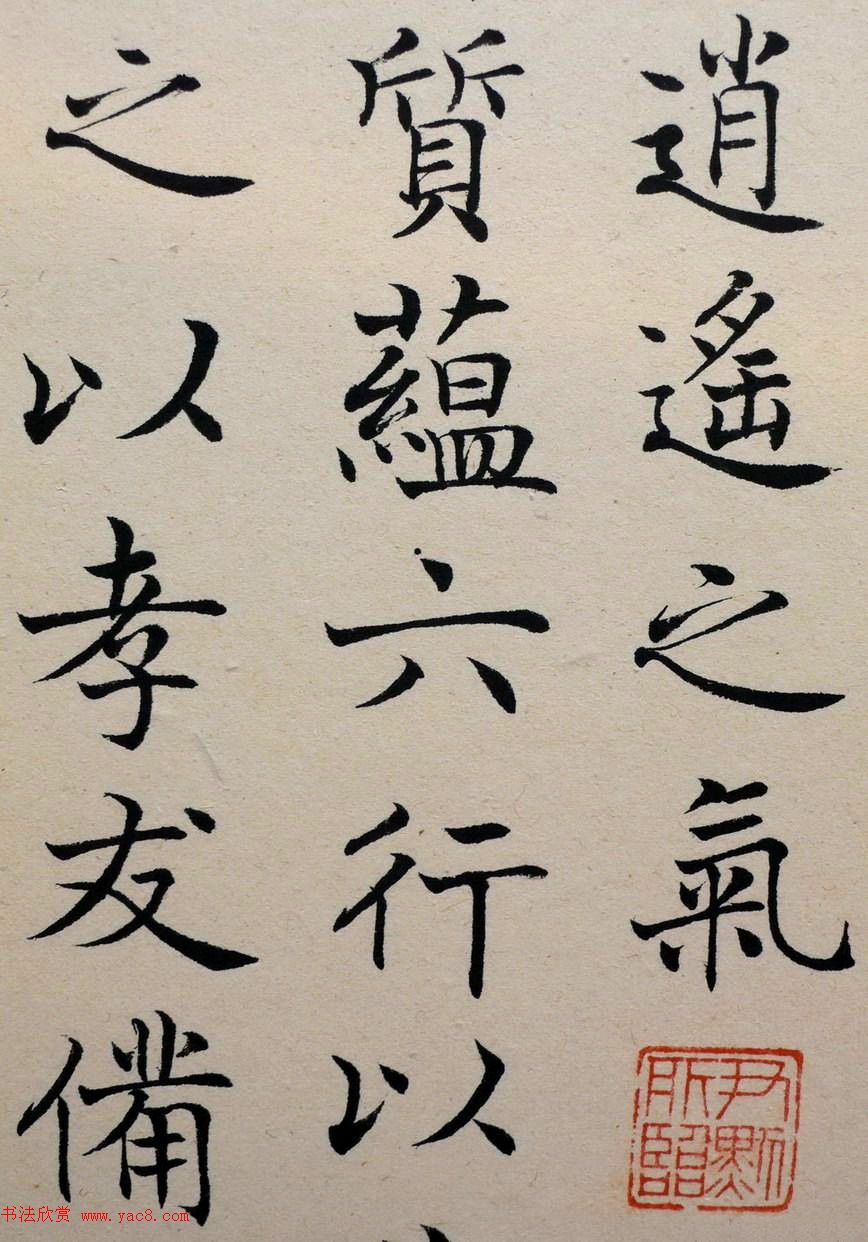 逍遙之氣
質蘊六行以
之以孝友備
尹默所臨
书法欣赏 www.yac8.com